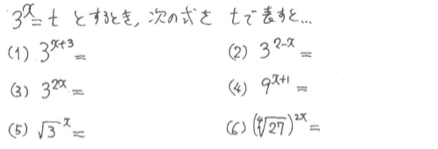 3^x = t とするとき, 次の式を tで表すと...
(1) 3^{x+3} =
(2) 3^{2-x} =
(3) 3^{2x} =
(4) 9^{x+1} =
(5) √3^x =
(6) (∜27)^{2x} =